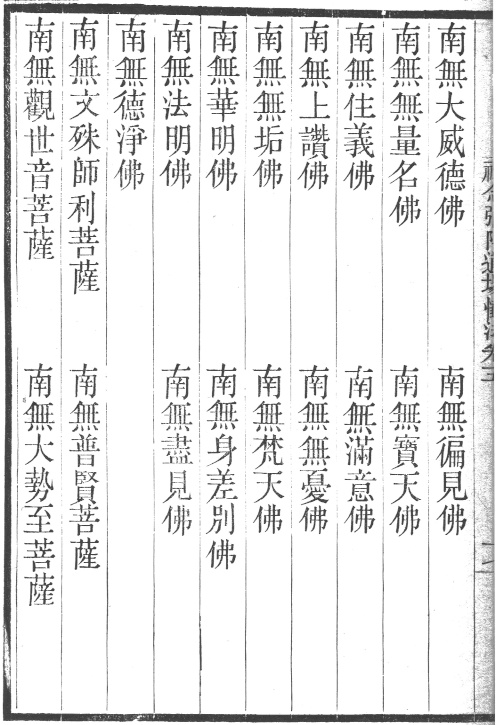 南無大威德佛　南無徧見佛
南無無量名佛　南無寶天佛
南無住義佛　南無滿意佛
南無上讚佛　南無無憂佛
南無無垢佛　南無梵天佛
南無華明佛　南無身差別佛
南無法明佛　南無盡見佛
南無德淨佛
南無文殊師利菩薩　南無普賢菩薩
南無觀世音菩薩　南無大勢至菩薩